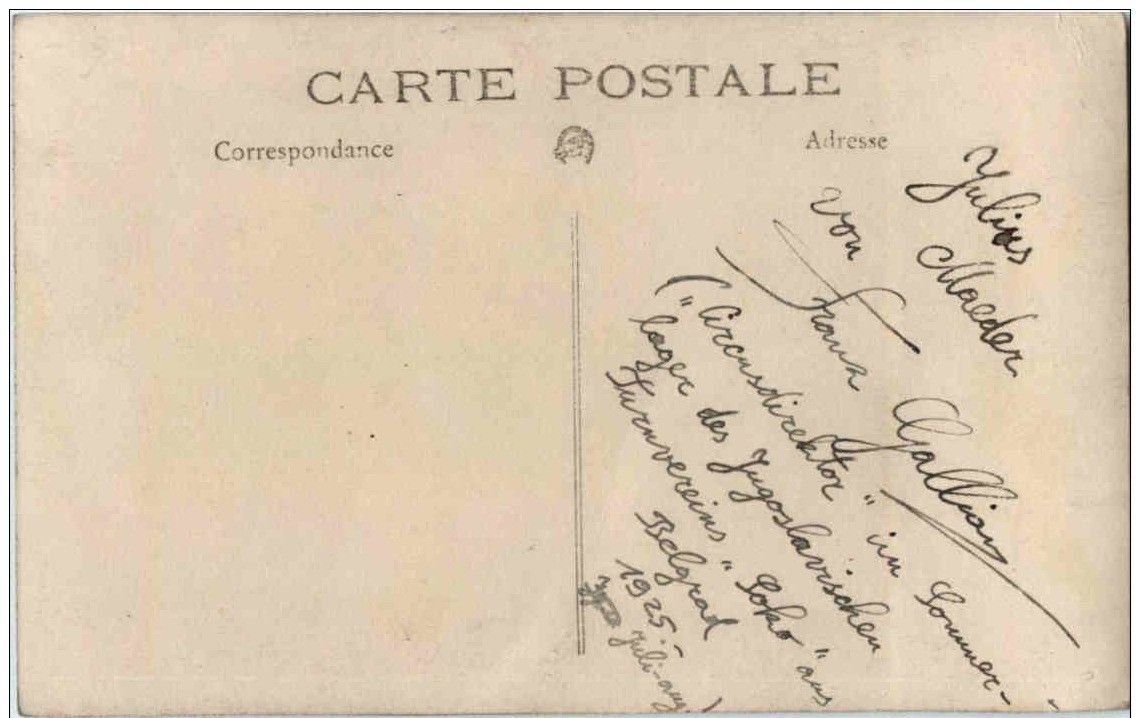 CARTE POSTALE
Correspondance
Adresse
Julius
Maeder
von
Franz
("Circusdirektor" im Sommer-
lager des Jugoslavischen
Turnvereins "Soko" aus
Belgrad
1925.-
Juli-aug.)